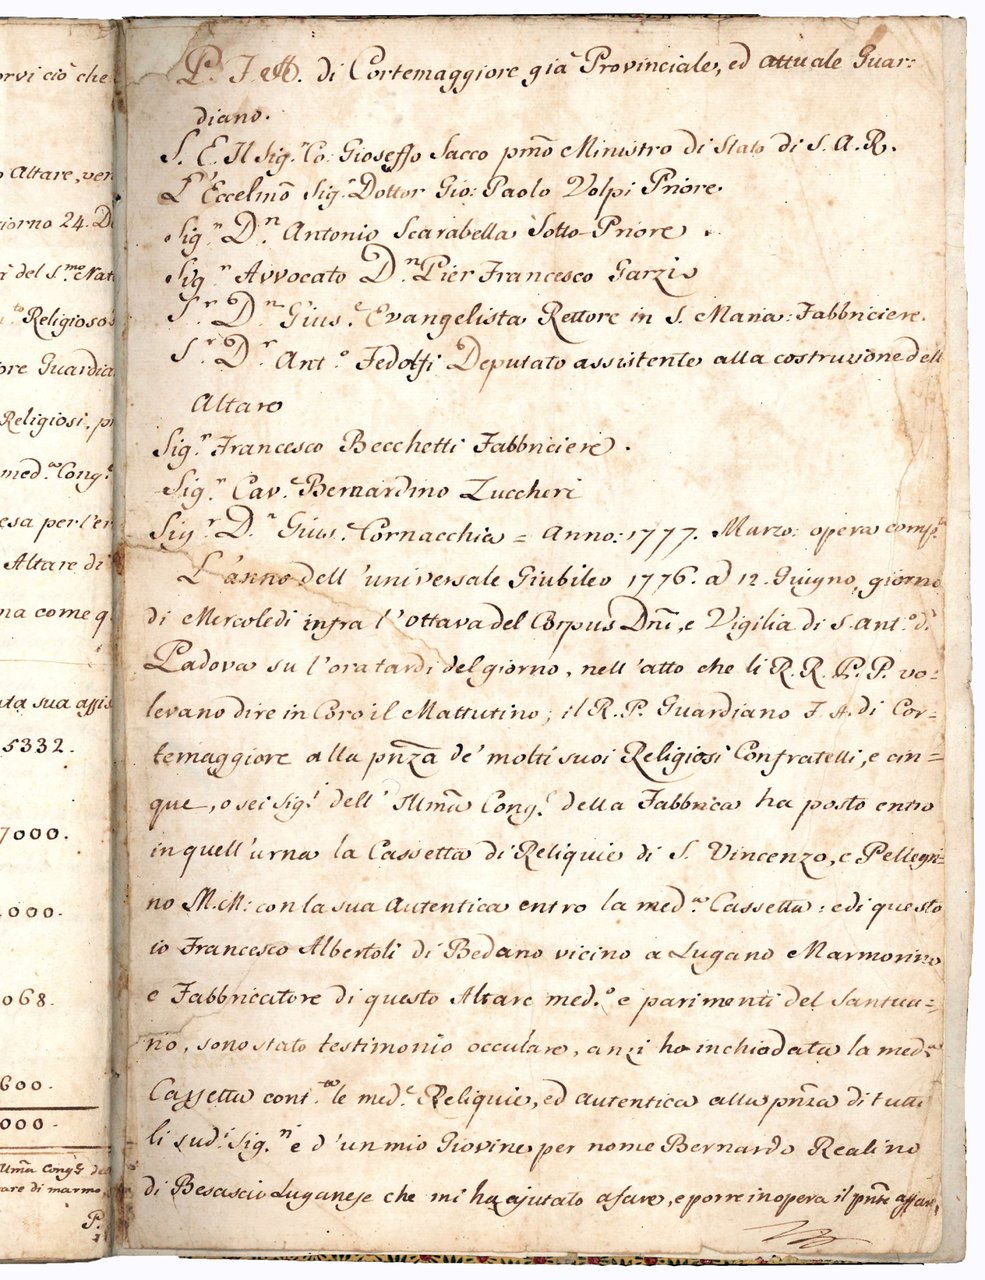 orvi ciò che
o Altare, ven
giorno 24. D
à del S.mo Nata
to Religioso
ore Guardia
Religiosi, p
med.a Cong.e
esa per l'er
Altare di
na come q
ata sua assis
5332.
7000.
000.
068.
600.
000.
Ilma Cong.e de
tare di marmo
P.
P. F. A. di Cortemaggiore già Provinciale, ed attuale Guar=
diano.
S. E. Il Sig.r Co: Gioseffo Sacco pmo Ministro di Stato di S. A. R.
L'Eccelmo Sig.r Dottor Gio: Paolo Volpi Priore
Sig.r D.n Antonio Scarabella Sotto-Priore.
Sig.r Avvocato D.n Pier Francesco Garzia
S.r D.n Gius.e Evangelista Rettore in S. Maria: Fabbriciere.
S.r D.r Ant.o Fedolfi Deputato assistente alla costruzione dell
Altare
Sig.r Francesco Becchetti Fabbriciere.
Sig.r Cav.e Bernardino Zuccheri
Sig.r D.r Gius. Cornacchia = Anno: 1777. Marzo: opera comp.ta
L'anno dell'universale Giubileo 1776. a 12. Giugno, giorno
di Mercoledi infra l'ottava del Corpus Dñi, e Vigilia di S. Ant.o di
Padova su l'ora tardi del giorno, nell'atto che li R. R. P. P. vo=
levano dire in Coro il Mattutino; il R. P. Guardiano F. A. di Cor=
temaggiore alla pñza de' molti suoi Religiosi Confratelli, e cin=
que, o sei Sig.i dell' Illma Cong.e della Fabbrica ha posto entro
in quell'urna la Cassetta di Reliquie di S. Vincenzo, e Pellegri=
no M. M: con la sua Autentica entro la med.a Cassetta: e di questo
io Francesco Albertoli di Bedano vicino a Lugano Marmorino
e Fabbricatore di questo Altare med.o e parimenti del Santua=
rio, sono stato testimonio occulare, anzi ho inchiodata la med.a
Cassetta cont.te le med.e Reliquie, ed autentica alla pñza di tutti
li sud.i Sig.ri e d'un mio Giovine per nome Bernardo Realino
di Besascio Luganese che mi ha ajutato a fare, e porre in opera il pñte